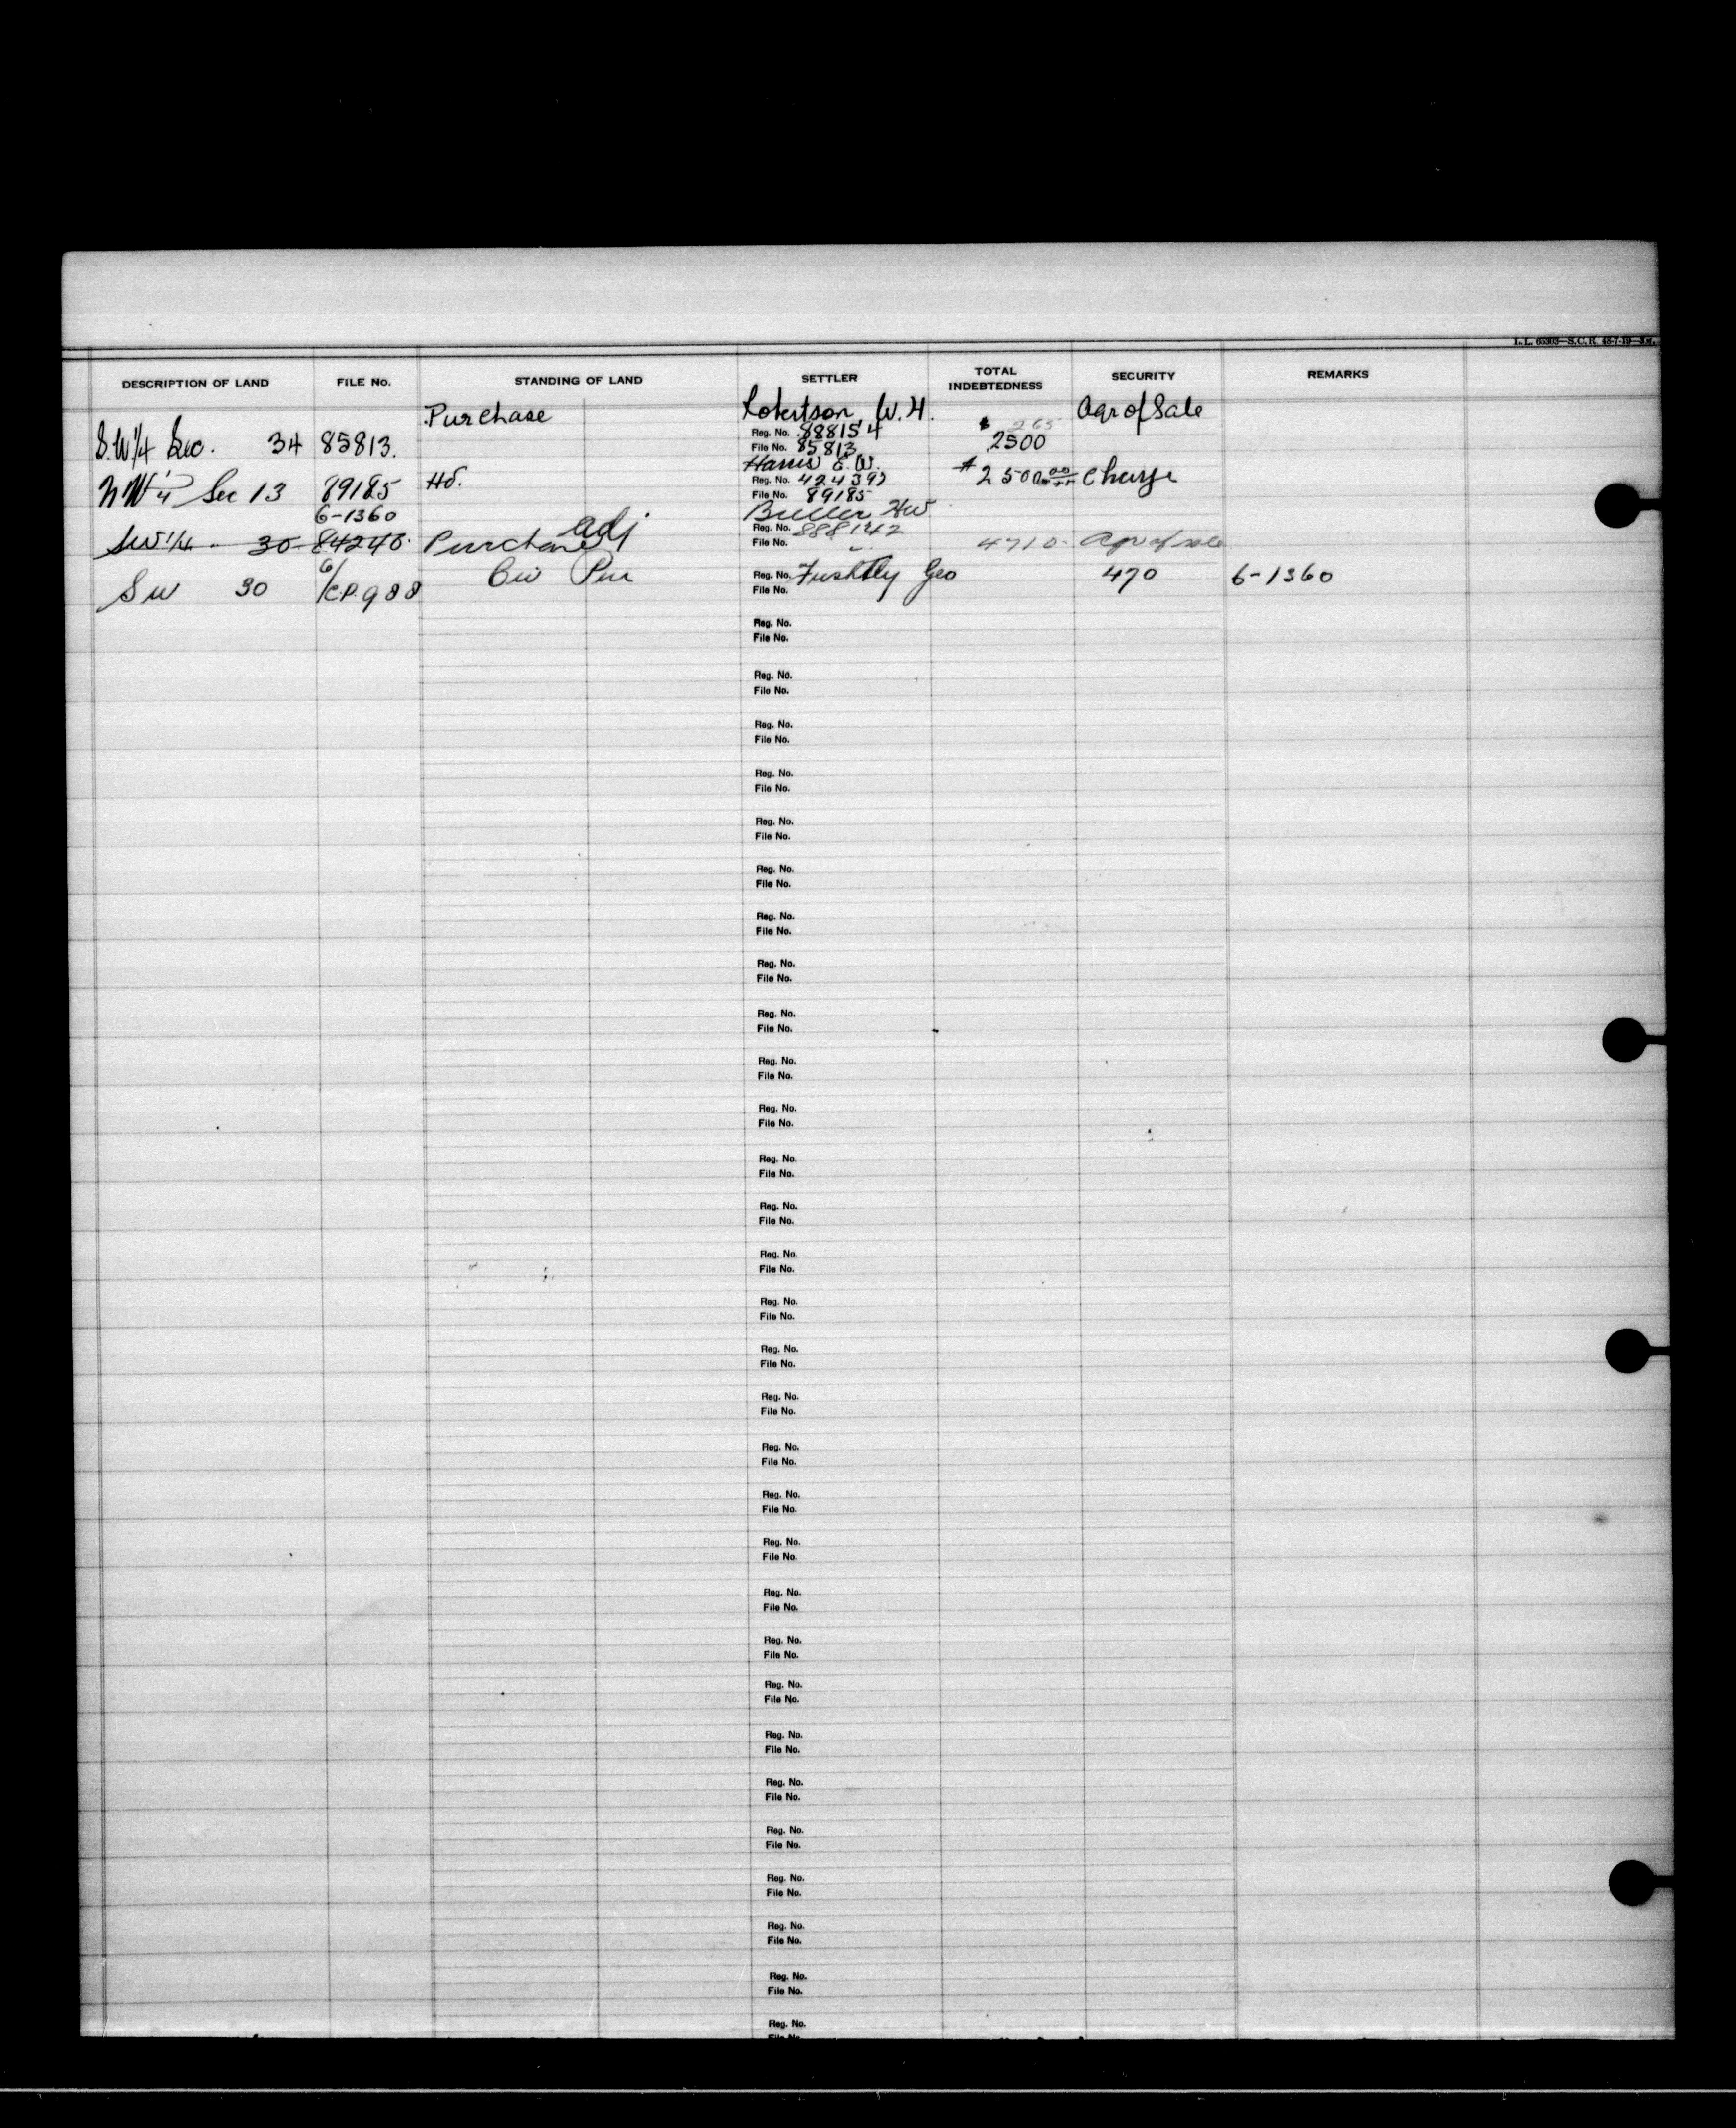 L.L. 65303—S.C.R. 48-7-19—3M.
DESCRIPTION OF LAND FILE No. STANDING OF LAND SETTLER TOTAL INDEBTEDNESS SECURITY REMARKS
Purchase Robertson, W. H. Agr of Sale
265
S.W 1/4 Sec. 34 85813. Reg. No. 888154 $ 2500
File No. 85813
Harris E. W.
NW 1/4 Sec 13 89185 Hd. Reg. No. 424397 $2500.00 Charge
File No. 89185
6-1360 Buller HW
SW 1/4 30 84246. Purchase adj Reg. No. 888142
File No. 4710. Agr of sale
SW 30 6/CP.988 Civ Pur Reg. No. Geo 470 6-1360
File No.
Reg. No.
File No.
Reg. No.
File No.
Reg. No.
File No.
Reg. No.
File No.
Reg. No.
File No.
Reg. No.
File No.
Reg. No.
File No.
Reg. No.
File No.
Reg. No.
File No.
Reg. No.
File No.
Reg. No.
File No.
Reg. No.
File No.
Reg. No.
File No.
Reg. No.
File No.
Reg. No.
File No.
Reg. No.
File No.
Reg. No.
File No.
Reg. No.
File No.
Reg. No.
File No.
Reg. No.
File No.
Reg. No.
File No.
Reg. No.
File No.
Reg. No.
File No.
Reg. No.
File No.
Reg. No.
File No.
Reg. No.
File No.
Reg. No.
File No.
Reg. No.
File No.
Reg. No.
File No.
Reg. No.
File No.